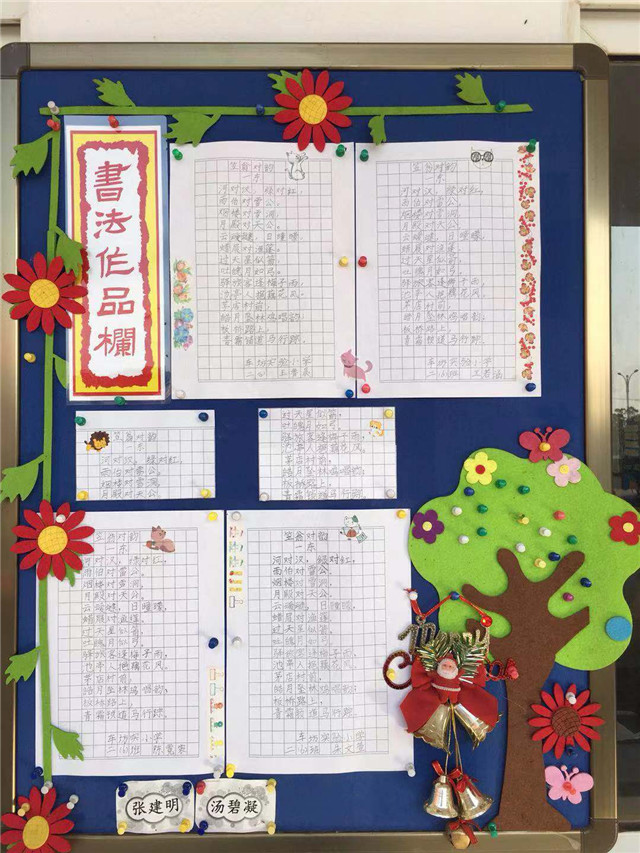 書法作品欄
笠翁对韵
一东
河对汉，绿对红。
雨伯对雷公。
烟楼对雪洞，
月殿对天宫。
云叆叇，日曈曚。
蜡屐对渔篷。
过天星似箭，
吐魄月如弓。
驿旅客逢梅子雨，
池亭人挹藕花风。
茅店村前，
皓月坠林鸡唱韵，
板桥路上，
青霜锁道马行踪。
车坊实验小学
二(4)班
笠翁对韵
一东
河对汉，绿对红。
雨伯对雷公。
烟楼对雪洞，
月殿对天宫。
云叆叇，日曈曚。
蜡屐对渔篷。
过天星似箭，
吐魄月如弓。
驿旅客逢梅子雨，
池亭人挹藕花风。
茅店村前，
皓月坠林鸡唱韵，
板桥路上，
青霜锁道马行踪。
车坊实验小学
二(4)班
笠翁对韵
河对汉，绿对红。
雨伯对雷公。
烟楼对雪洞，
月殿对天宫。
过天星似箭，
吐魄月如弓。
驿旅客逢梅子雨，
池亭人挹藕花风。
茅店村前，
皓月坠林鸡唱韵，
板桥路上，
青霜锁道马行踪。
笠翁对韵
一东
河对汉，绿对红。
雨伯对雷公。
烟楼对雪洞，
月殿对天宫。
云叆叇，日曈曚。
蜡屐对渔篷。
过天星似箭，
吐魄月如弓。
驿旅客逢梅子雨，
池亭人挹藕花风。
茅店村前，
皓月坠林鸡唱韵，
板桥路上，
青霜锁道马行踪。
车坊实验小学
二(4)班
笠翁对韵
一东
河对汉，绿对红。
雨伯对雷公。
烟楼对雪洞，
月殿对天宫。
云叆叇，日曈曚。
蜡屐对渔篷。
过天星似箭，
吐魄月如弓。
驿旅客逢梅子雨，
池亭人挹藕花风。
茅店村前，
皓月坠林鸡唱韵，
板桥路上，
青霜锁道马行踪。
车坊实验小学
二(4)班
Merry
张建明
汤碧凝